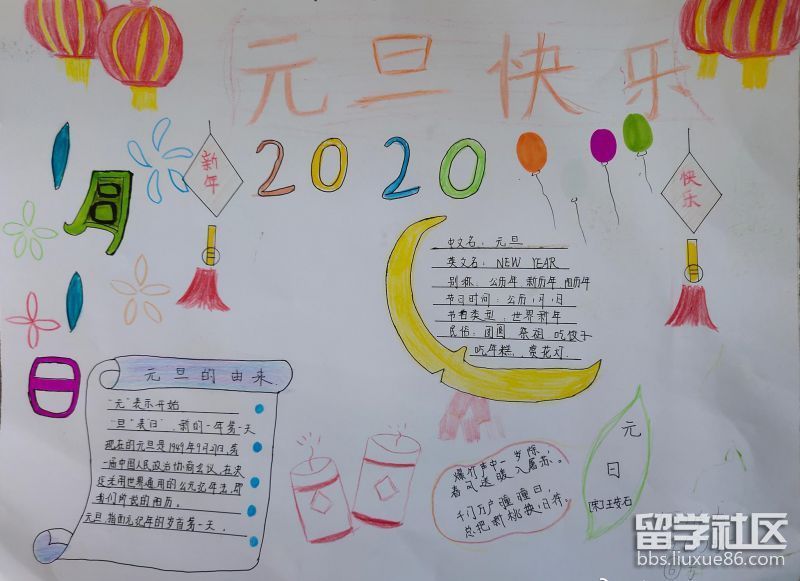 元旦快乐
新年
2020
快乐
1月
1日
中文名：元旦
英文名：NEW YEAR
别称：公历年 新历年 阳历年
节日时间：公历1月1日
节日类型：世界新年
民俗：团圆 祭祖 吃饺子
吃年糕，赏花灯.
元旦的由来.
"元"表示开始
"旦"表日，新的一年第一天
现在的元旦是1949年9月27日,第
一届中国人民政治协商会议,在决
议采用世界通用的公元纪年法,即
我们所说的阳历.
元旦,指公元纪年的岁首第一天.
爆竹声中一岁除,
春风送暖入屠苏.
千门万户曈曈日,
总把新桃换旧符.
元
日
[宋]王安石
留学社区
bbs.liuxue86.com